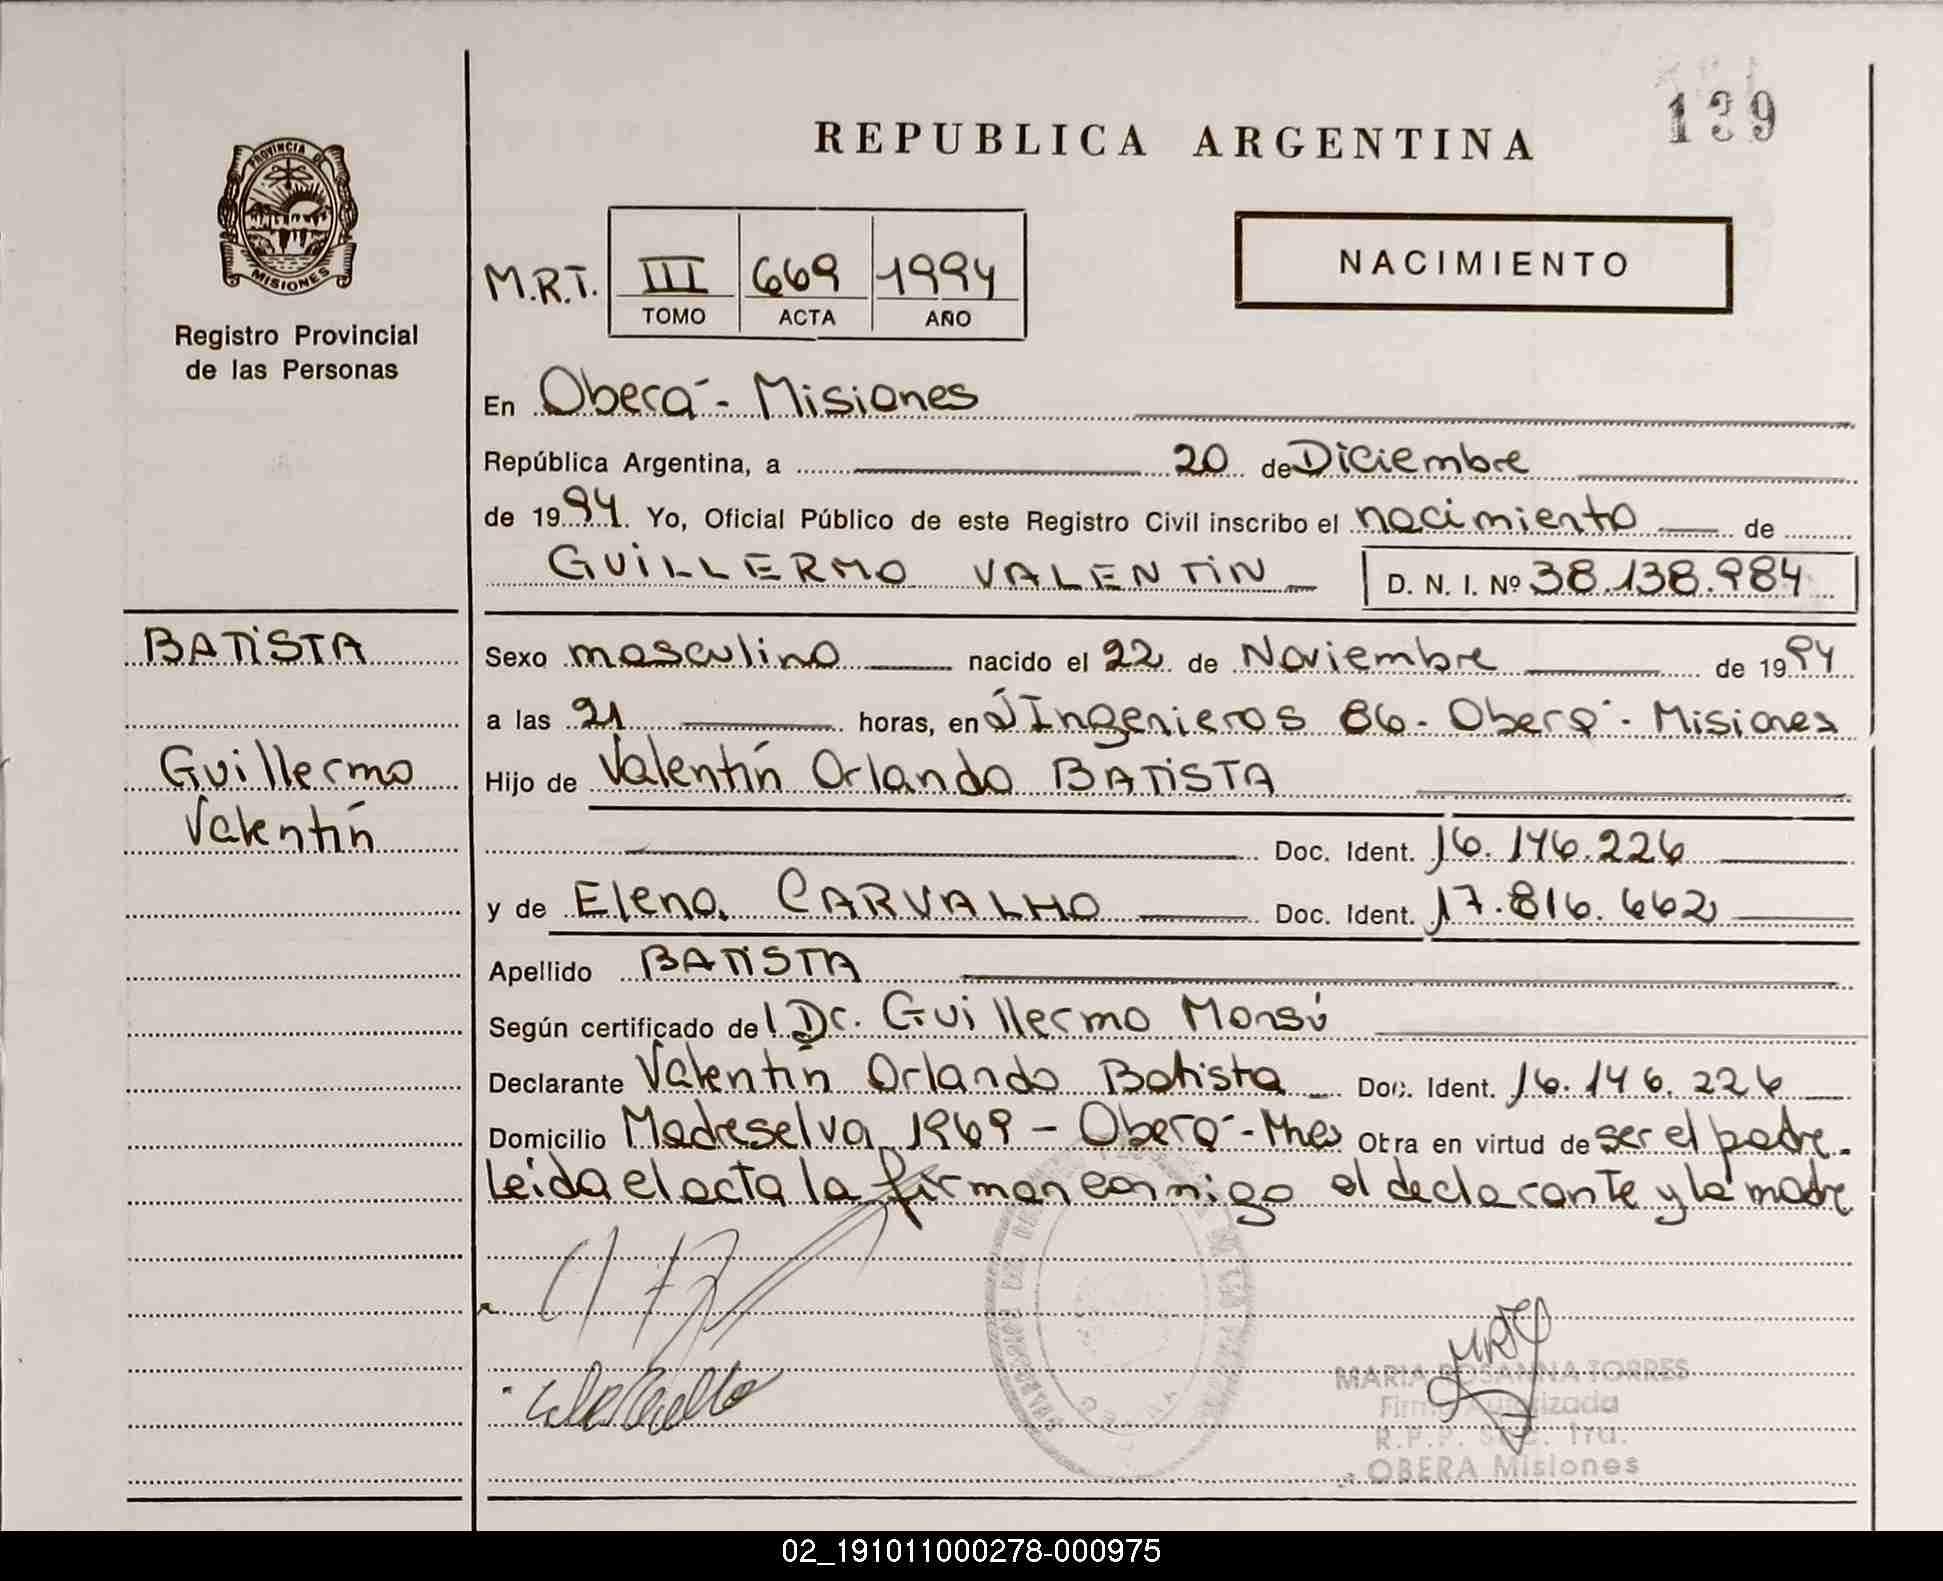 139
REPUBLICA ARGENTINA
PROVINCIA DE
MISIONES
Registro Provincial
de las Personas
NACIMIENTO
M.R.T. III 669 1994
TOMO ACTA AÑO
En Oberá - Misiones
República Argentina, a 20 de Diciembre
de 1994. Yo, Oficial Público de este Registro Civil inscribo el nacimiento de
GUILLERMO VALENTIN D. N. I. Nº 38.138.984
BATISTA
Guillermo
Valentín
Sexo masculino nacido el 22 de Noviembre de 1994
a las 21 horas, en J Ingenieros 86 - Oberá - Misiones
Hijo de Valentín Orlando BATISTA
Doc. Ident. 16.146.226
y de Elena CARVALHO Doc. Ident. 17.816.662
Apellido BATISTA
Según certificado del Dr. Guillermo Monsú
Declarante Valentín Orlando Batista Doc. Ident. 16.146.226
Domicilio Madreselva 1969 - Oberá - Mnes Obra en virtud de ser el padre.
Leida el acta la firman conmigo el declarante y la madre
MARIA ROSANNA TORRES
Firma Autorizada
R.P.P.
OBERA Misiones
02_191011000278-000975